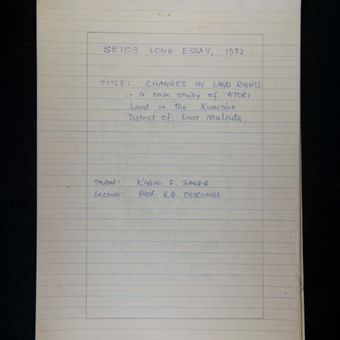 SE103 LONG ESSAY, 1982.
TITLE: CHANGES IN LAND RIGHTS
:- a case study of ATORI
Land in the Kwara'ae
District of East Malaita
Student: F. SANGA
Lecturer: PROF. R.G. CROCOMBE